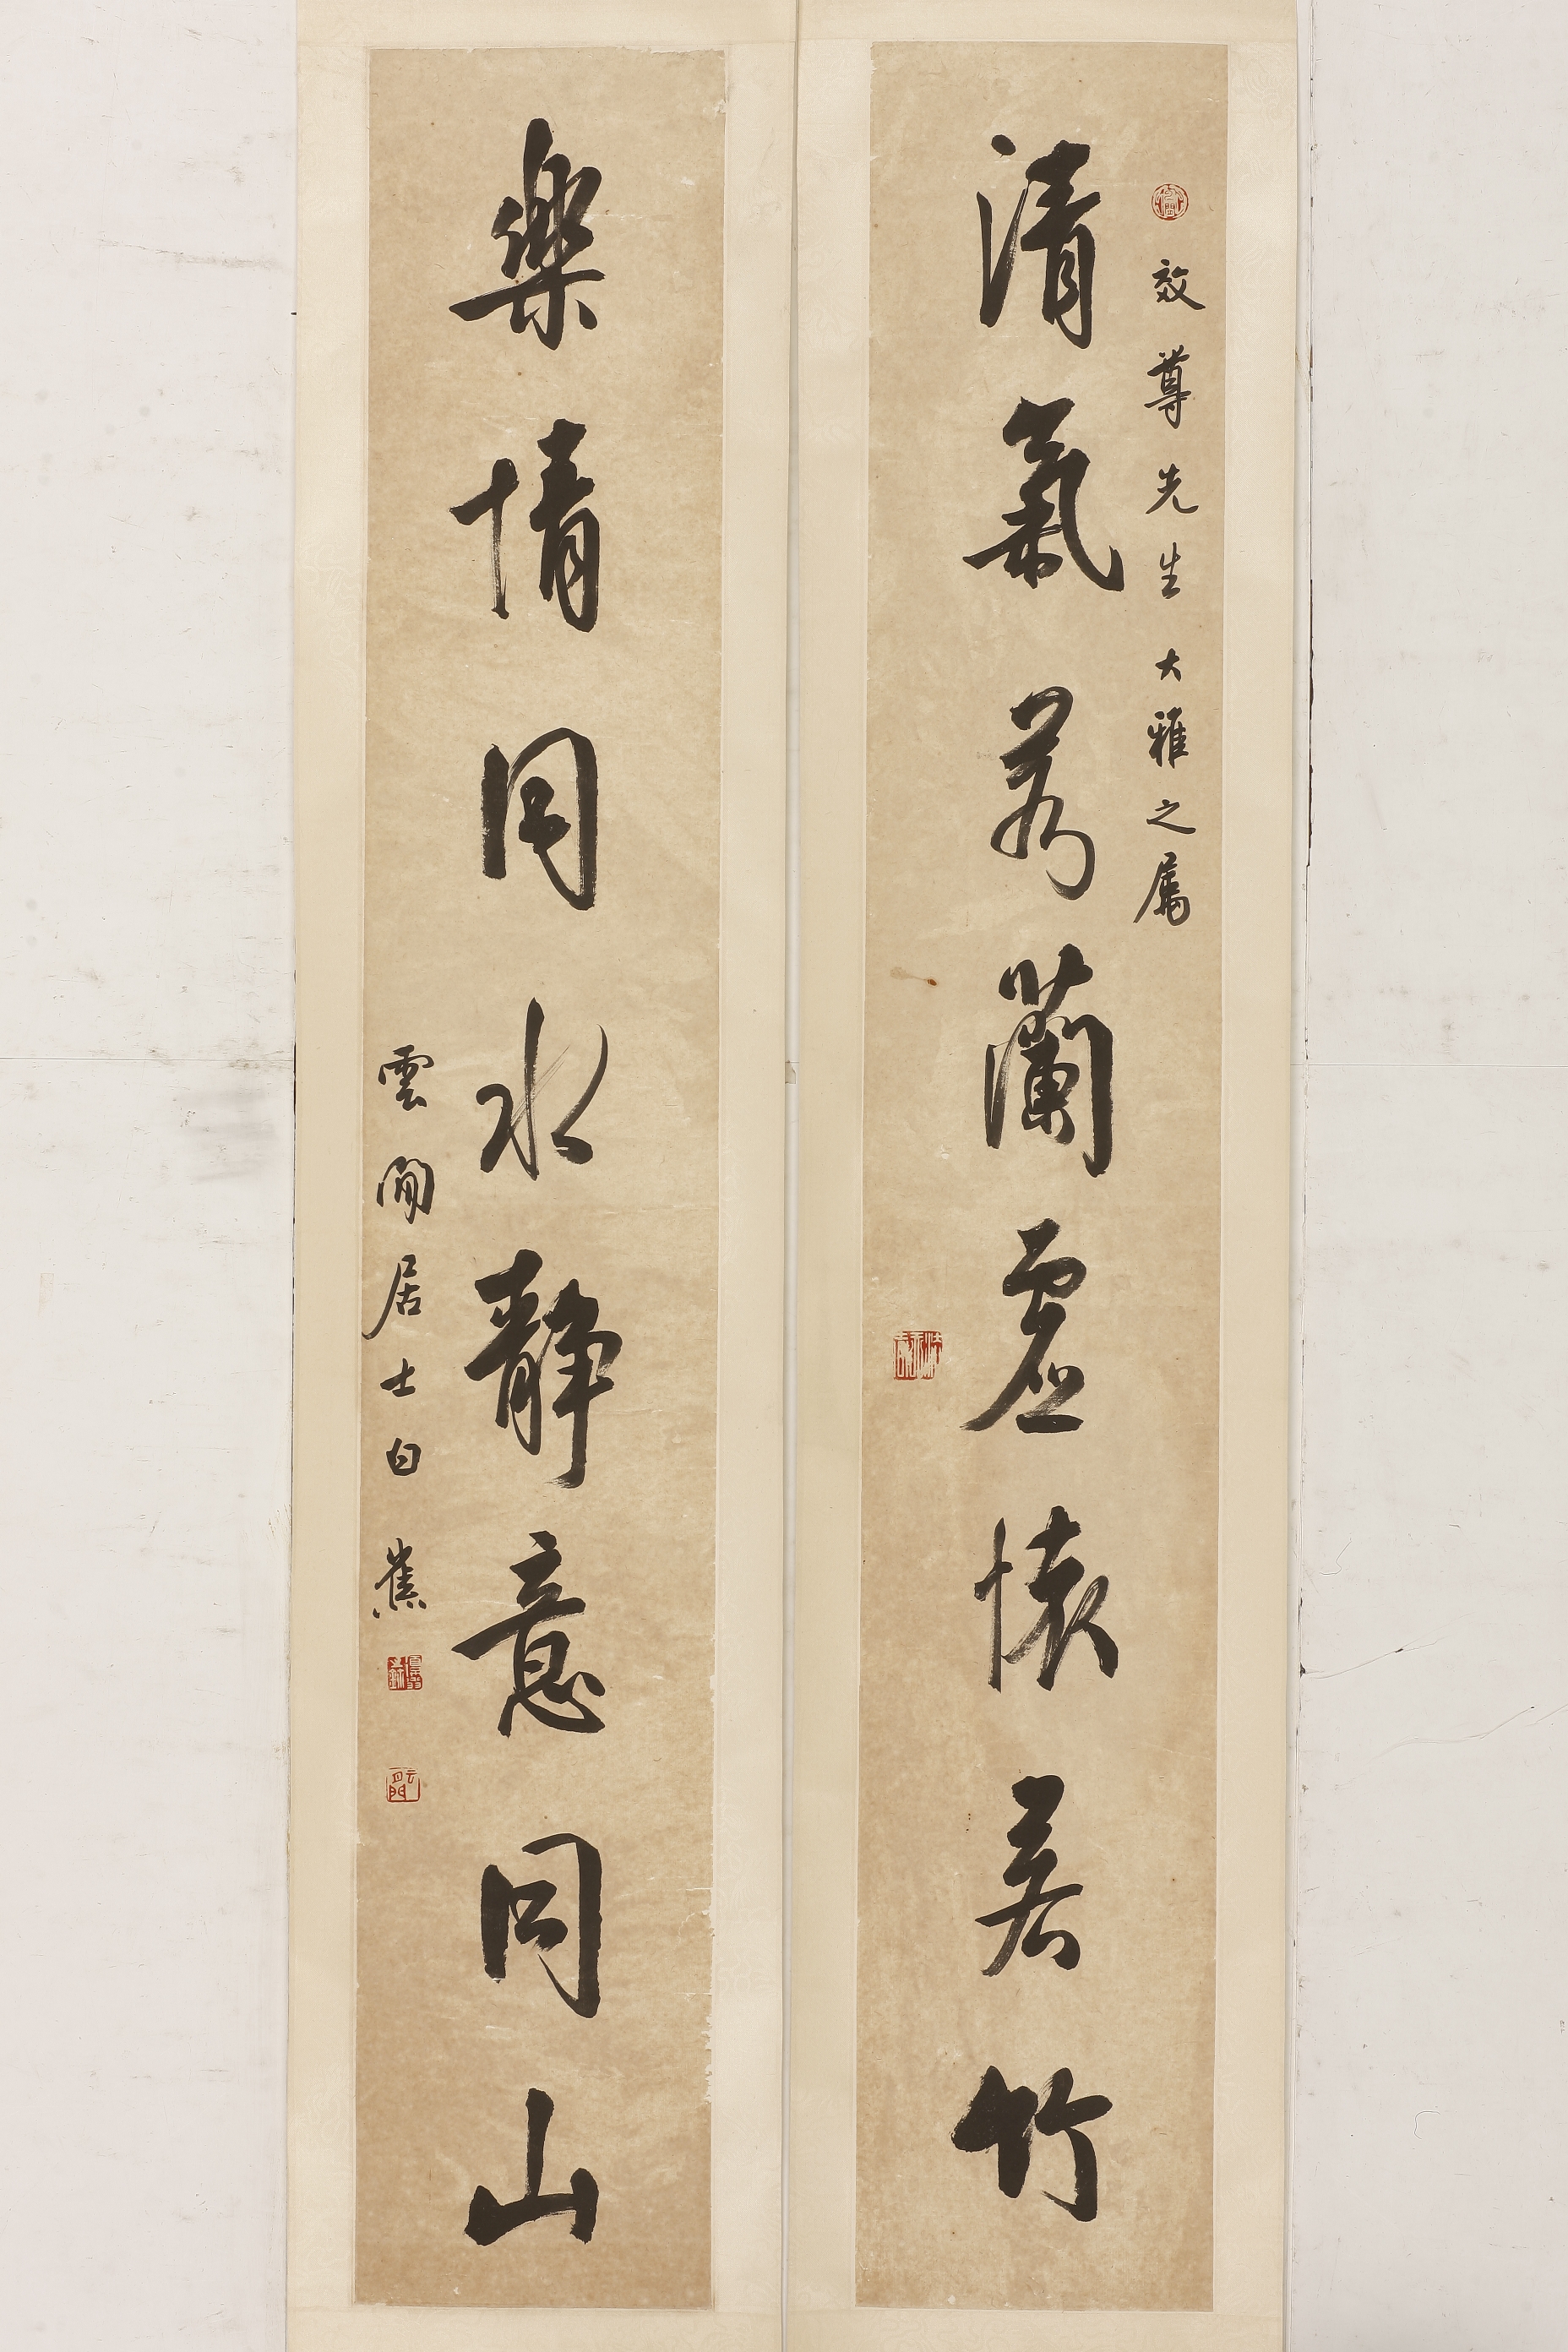 效尊先生大雅之屬
清氣若蘭虛懷若竹
樂情同水靜意同山
雲間居士白蕉